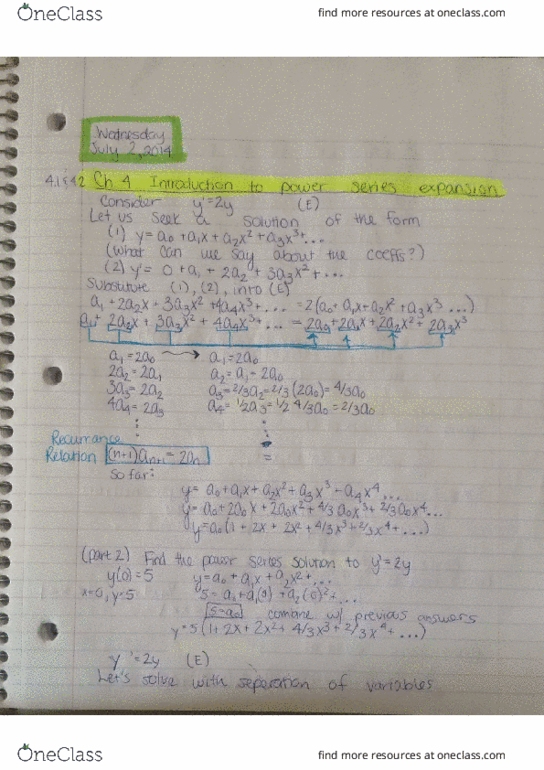 OneClass
find more resources at oneclass.com
Wednesday
July 2, 2014
4.1 & 4.2 Ch 4 Introduction to power series expansion
Consider y'=2y (E)
Let us seek a solution of the form
(1) y= a₀ + a₁x + a₂x² + a₃x³+...
(What can we say about the coeffs?)
(2) y'= 0 + a₁ + 2a₂ + 3a₃x² + ...
Substitute (1), (2), into (E)
a₁ + 2a₂x + 3a₃x² + 4a₄x³+... = 2(a₀+ a₁x+ a₂x² + a₃x³ ...)
a₁+ 2a₂x + 3a₃x² + 4a₄x³+ ... = 2a₀+2a₁x+2a₂x²+ 2a₃x³
a₁= 2a₀ → a₁= 2a₀
2a₂= 2a₁ a₂= a₁= 2a₀
3a₃= 2a₂ a₃= 2/3a₂= 2/3 (2a₀)= 4/3a₀
4a₄= 2a₃ a₄= 1/2a₃= 1/2 4/3a₀ = 2/3a₀
Recurrance
Relation (n+1)aₙ₊₁= 2aₙ
So far:
y= a₀+a₁x+a₂x²+a₃x³-a₄x⁴...
y= a₀+2a₀x+2a₀x²+4/3a₀x³+2/3a₀x⁴...
y=a₀(1+2x+2x²+4/3x³+2/3x⁴+...)
(part 2) Find the power series solution to y'=2y
y(0)=5 y=a₀+a₁x+a₂x²+...
x=0, y=5 5= a₀+a₁(0)+a₂(0)²+...
5=a₀ w/ previous answers
y=5(1+2x+2x²+4/3x³+2/3x⁴+...)
y'=2y (E)
Let's solve with seperation of variables
OneClass
find more resources at oneclass.com